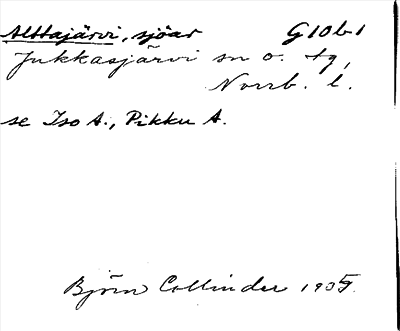 Alttajärvi, sjöar G10b1
Jukkasjärvi sn o. tg,
Norrb. l.
se Iso A., Pikku A.
Björn Collinder 1935.